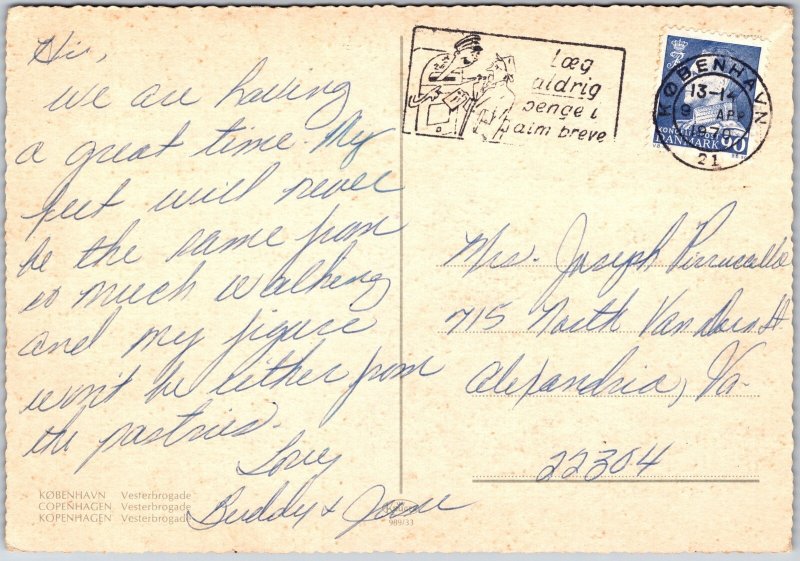 Hi,
We are having
a great time. My
feet will never
be the same from
so much walking
and my figure
won't be either from
the pastries.
Love,
Buddy & Jane
KØBENHAVN Vesterbrogade
COPENHAGEN Vesterbrogade
KOPENHAGEN Vesterbrogade
989/33
Læg
aldrig
penge i
alm breve
KØBENHAVN
13-14
9 APR
1970
21
DANMARK 90
Mrs. Joseph
715 North Van Dorn St
Alexandria, Va.
22304